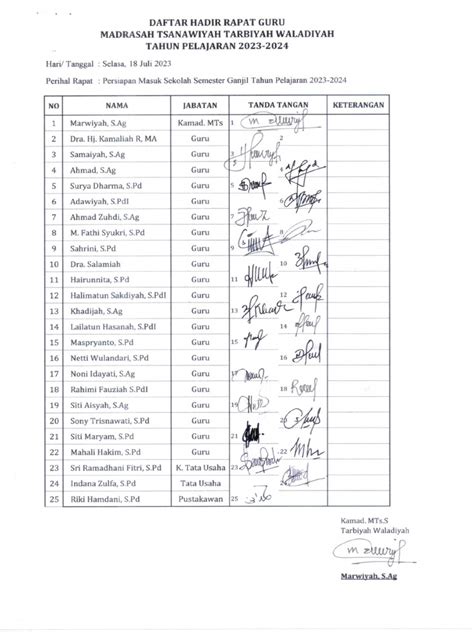 DAFTAR HADIR RAPAT GURU
MADRASAH TSANAWIYAH TARBIYAH WALADIYAH
TAHUN PELAJARAN 2023-2024
Hari/ Tanggal : Selasa, 18 Juli 2023
Perihal Rapat : Persiapan Masuk Sekolah Semester Ganjil Tahun Pelajaran 2023-2024
NO NAMA JABATAN TANDA TANGAN KETERANGAN
1 Marwiyah, S.Ag Kamad. MTs 1
2 Dra. Hj. Kamaliah R, MA Guru 2
3 Samaiyah, S.Ag Guru 3
4 Ahmad, S.Ag Guru 4
5 Surya Dharma, S.Pd Guru 5
6 Adawiyah, S.PdI Guru 6
7 Ahmad Zuhdi, S.Ag Guru 7
8 M. Fathi Syukri, S.Pd Guru 8
9 Sahrini, S.Pd Guru 9
10 Dra. Salamiah Guru 10
11 Hairunnita, S.Pd Guru 11
12 Halimatun Sakdiyah, S.PdI Guru 12
13 Khadijah, S.Ag Guru 13
14 Lailatun Hasanah, S.PdI Guru 14
15 Maspryanto, S.Pd Guru 15
16 Netti Wulandari, S.Pd Guru 16
17 Noni Idayati, S.Ag Guru 17
18 Rahimi Fauziah S.PdI Guru 18
19 Siti Aisyah, S.Ag Guru 19
20 Sony Trisnawati, S.Pd Guru 20
21 Siti Maryam, S.Pd Guru 21
22 Mahali Hakim, S.Pd Guru 22
23 Sri Ramadhani Fitri, S.Pd K. Tata Usaha 23
24 Indana Zulfa, S.Pd Tata Usaha 24
25 Riki Hamdani, S.Pd Pustakawan 25
Kamad. MTs.S
Tarbiyah Waladiyah
Marwiyah, S.Ag